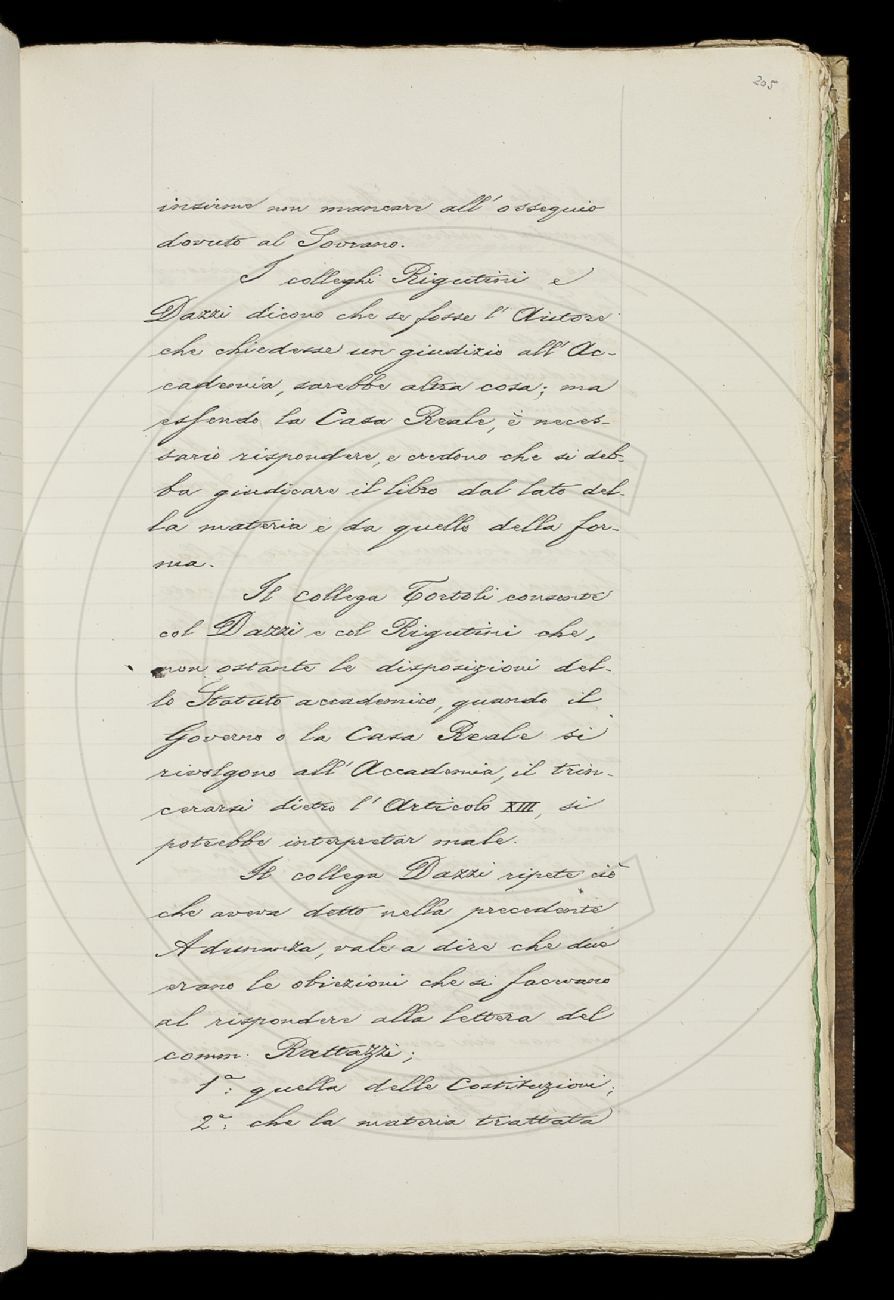 205
insieme non mancare all'ossequio
dovuto al Sovrano.
I colleghi Rigutini e
Dazzi dicono che se fosse l'Autore
che chiedesse un giudizio all'Ac-
cademia, sarebbe altra cosa; ma
essendo la Casa Reale, è neces-
sario rispondere, e credono che si deb-
ba giudicare il libro dal lato del-
la materia e da quello della for-
ma.
Il collega Tortoli consente
col Dazzi e col Rigutini che,
non ostante le disposizioni del-
lo Statuto accademico, quando il
Governo o la Casa Reale si
rivolgono all'Accademia, il trin-
cerarsi dietro l'Articolo XIII, si
potrebbe interpretar male.
Il collega Dazzi ripete ciò
che aveva detto nella precedente
Adunanza, vale a dire che due
erano le obiezioni che si facevano
al rispondere alla lettera del
comm. Rattazzi;
1ª: quella delle Costituzioni;
2ª: che la materia trattata